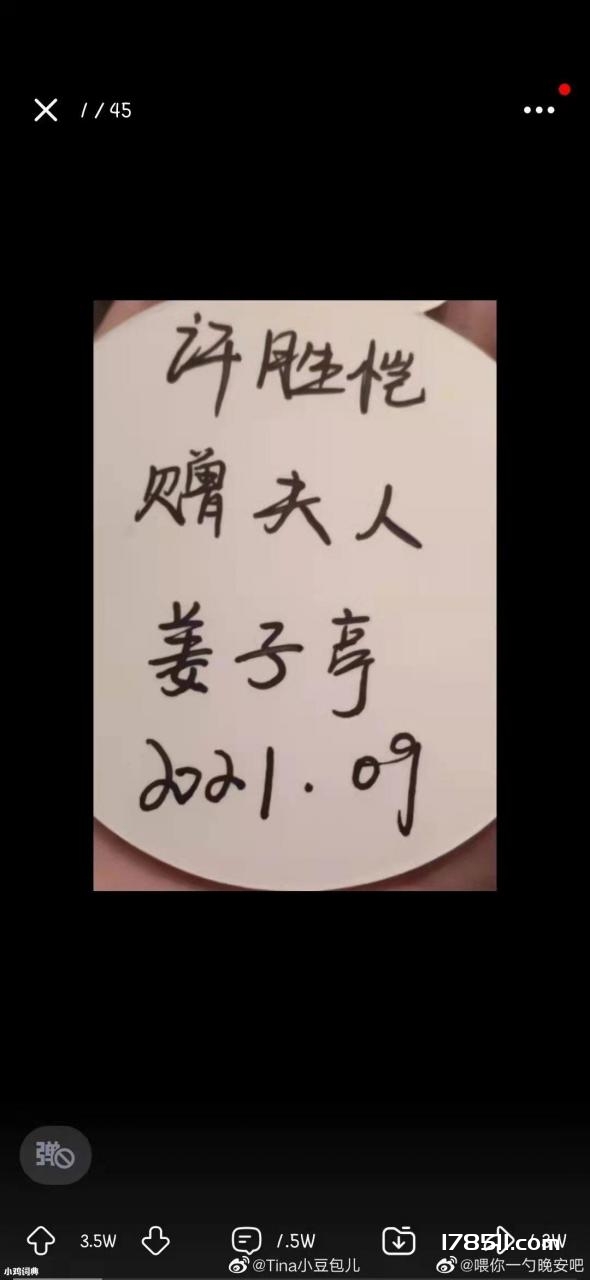 1/45
许胜恺
赠夫人
姜子亭
2021.09
弹
3.5W
1.5W
1785JJ.com
@Tina小豆包儿
@喂你一勺晚安吧
小鸡词典